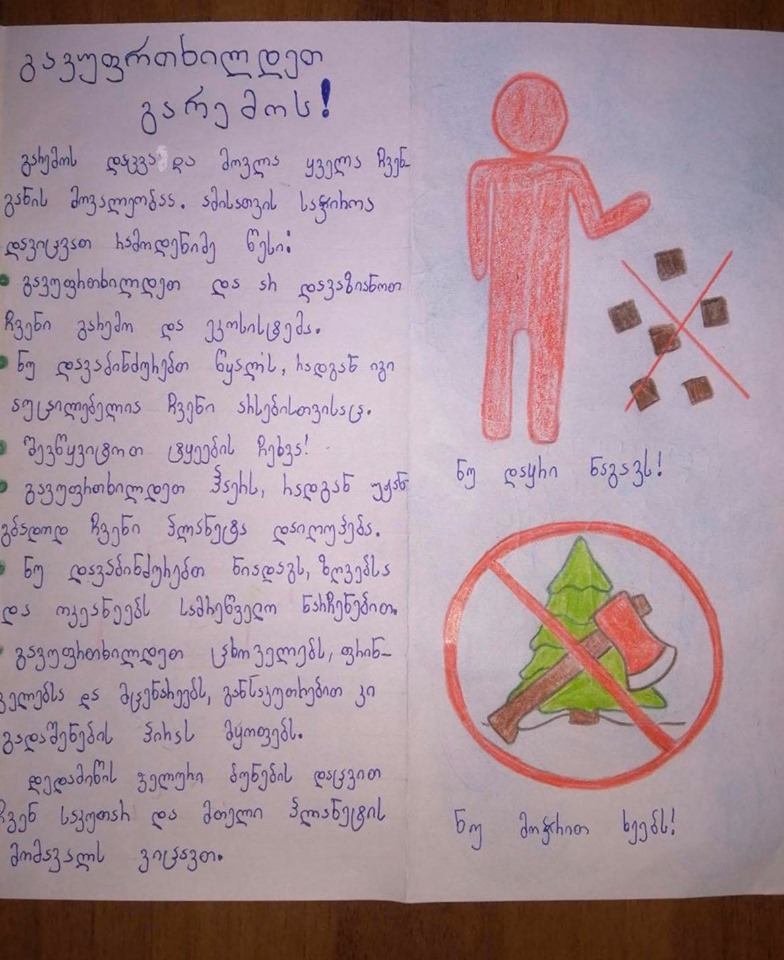 გავუფრთხილდეთ
გარემოს!
გარემოს დაცვა და მოვლა ყველა ჩვენ-
განის მოვალეობაა. ამისათვის საჭიროა
დავიცვათ რამოდენიმე წესი:
• გავუფრთხილდეთ და არ დავაზიანოთ
ჩვენი გარემო და ეკოსისტემა.
• ნუ დავაბინძურებთ წყალს, რადგან იგი
აუცილებელია ჩვენი არსებისთვისაც.
• შევწყვიტოთ ტყეების ჩეხვა!
• გავუფრთხილდეთ ჰაერს, რადგან უჟან
გბადოდ ჩვენი პლანეტა დაიღუპება.
• ნუ დავაბინძურებთ ნიადაგს, ზღვებსა
და ოკეანეებს სამრეწველო ნარჩენებით.
• გავუფრთხილდეთ ცხოველებს, ფრინ-
ველებსა და მცენარეებს, განსაკუთრებით კი
გადაშენების პირას მყოფებს.
დედამიწის ველური ბუნების დაცვით
ჩვენ საკუთარ და მთელი პლანეტის
მომავალს ვიცავთ.
ნუ დაყრი ნაგავს!
ნუ მოჭრით ხეებს!